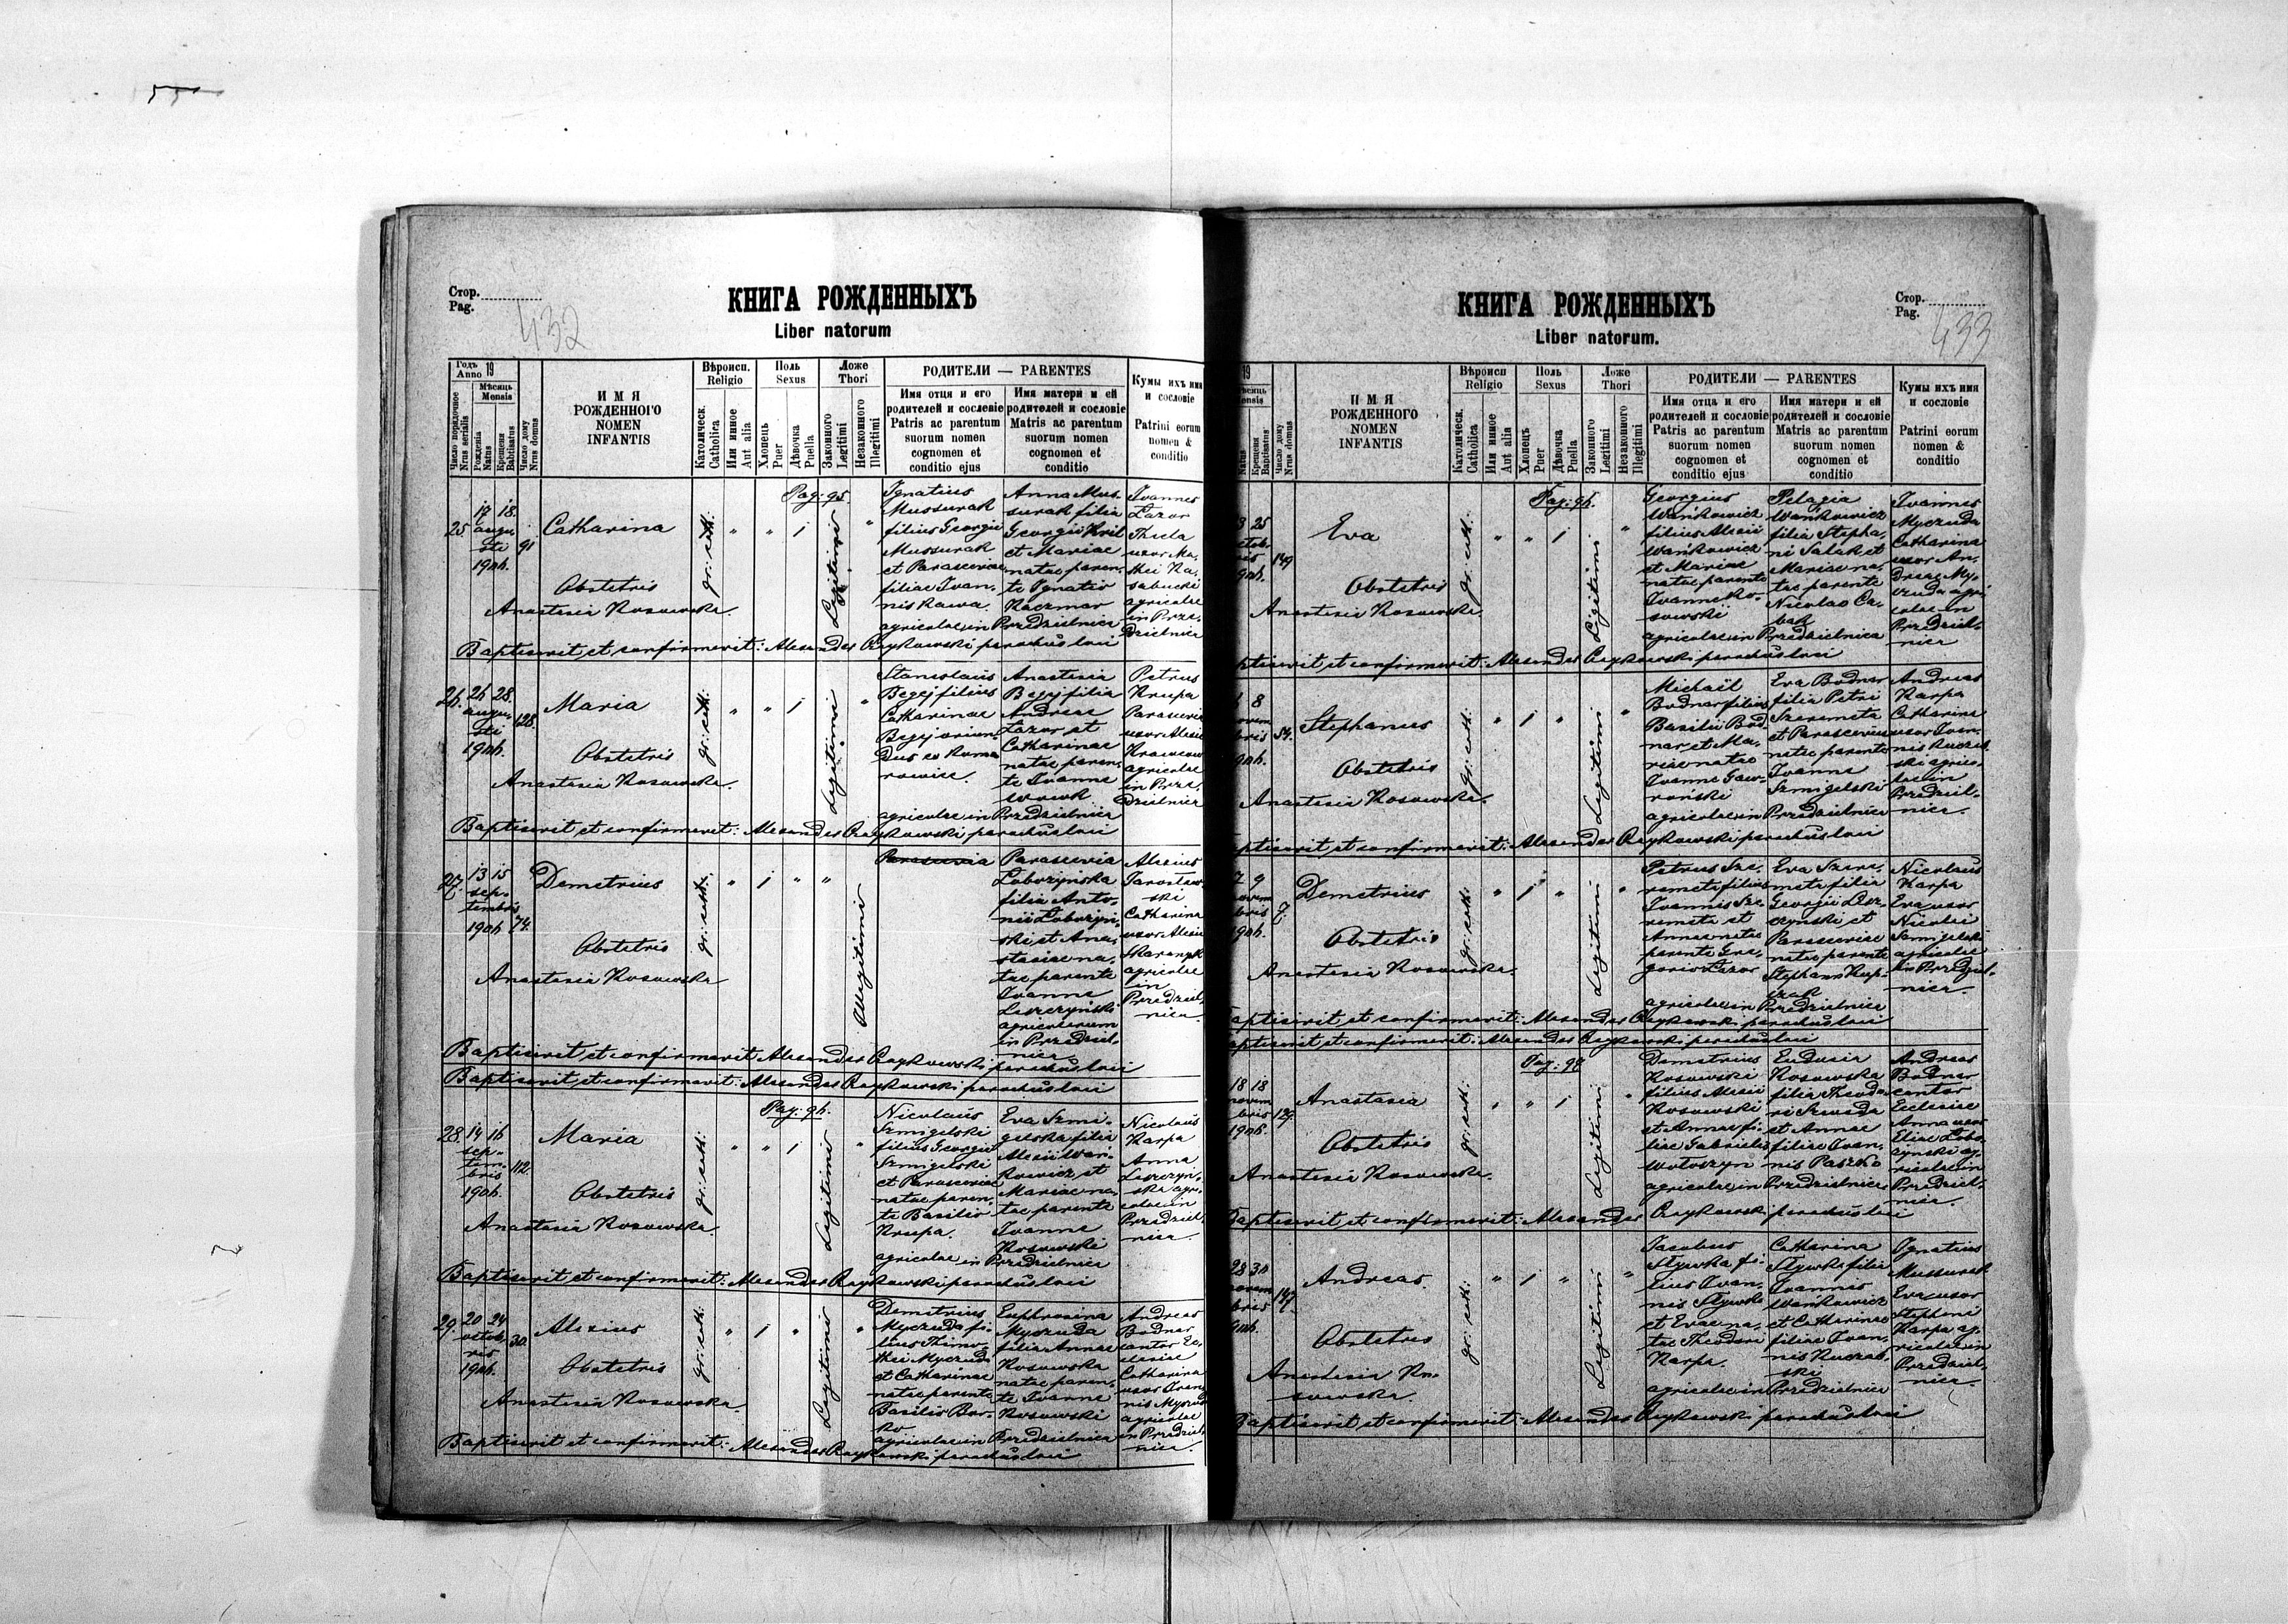 Стор.
Pag.
432
КНИГА РОЖДЕННЫХЪ
Liber natorum
Годъ 19
Anno
Мѣсяць
Mensis
Число порядочное
Nrus serialis
Рожденія
Natus
Крещенія
Babtisatus
Число дому
Nrus domus
И М Я
РОЖДЕННОГО
NOMEN
INFANTIS
Вѣроисп.
Religio
Католическ.
Catholica
Или инное
Aut alia
Поль
Sexus
Хлопець
Puer
Дѣвочка
Puella
Ложе
Thori
Законного
Legitimi
Незаконного
Illegitimi
РОДИТЕЛИ — PARENTES
Имя отця и его
родителей и сословіе
Patris ac parentum
suorum nomen
cognomen et
conditio ejus
Имя матери и ей
родителей и сословіе
Matris ac parentum
suorum nomen
cognomen et
conditio
Кумы ихъ имя
и сословіе
Patrini eorum
nomen &
conditio
Pag: 95
25
17 18.
augu
sti
1906.
91
Catharina
Obstetris
Anastasia Kosowska.
gr: cath:
" " 1
Legitimi
"
Ignatius
Mussurak
filius Georgii
Mussurak
et Parasceviae
filiae Ivan-
nis Kawa.
agricolae in Przedzielnica
Anna Mus-
surak filia
Georgii Kril
et Mariae
natae paren-
te Ignatio
Kaczmar
Ivannes
Lazor
Thecla
uxor Ma-
thei Ka-
sabucki
agricolae
in Prze-
dzielnica
Baptisavit et confirmavit: Alexander Czajkowski parochus loci
26.
26 28.
augu-
sti
1906.
128.
Maria
Obstetris
Anastasia Kosowska.
gr: cath:
" " 1
Legitimi
"
Stanislaus
Begej filius
Catharinae
Begej oriun-
dus ex Koma
rowice.
Anastasia
Begej filia
Andreae
Lazor et
Catharinae
natae paren-
te Ivanne
Wowk
agricolae in Przedzielnica
Petrus
Krupa
Parascevia
uxor Alexii
agricolae
in Prze-
dzielnica
Baptisavit et confirmavit: Alexander Czajkowski parochus loci
27.
13 15
sep-
tembris
1906
74.
Demetrius
Obstetris
Anastasia Kosowska
gr: cath:
" 1 " "
Illegitimi
Parascevia
Parascevia
Lobozyńska
filia Anto-
nii Lobozyń-
ski et Ana-
stasiae na-
tae parente
Ivanne
Leszczyński
agricolarum
in Przedziel-
nica
Alexius
Jarosław-
ski
Catharina
uxor Alexii
agricolae
in
Przedziel-
nica
Baptisavit et confirmavit: Alexander Czajkowski parochus loci
Baptisavit et confirmavit: Alexander Czajkowski parochus loci
Pag: 96.
28.
14 16
sep-
tem-
bris
1906.
112.
Maria
Obstetris
Anastasia Kosowska.
gr: cath:
" " 1
Legitimi
"
Nicolaus
Szmigelski
filius Georgii
Szmigelski
et Parasceviae
natae paren-
te Basilio
Krupa.
agricolae in Przedzielnica
Eva Szmi-
gelska filia
Alexii Wań-
kowicz et
Mariae na-
tae parente
Ivanne
Kosowski
Nicolaus
Karpa
Anna
Leszczyń-
ska agri-
colae in
Przedziel-
nica
Baptisavit et confirmavit: Alexander Czajkowski parochus loci
29.
20 24
octob-
ris
1906.
30.
Alexius
Obstetris
Anastasia Kosowska.
gr: cath:
" 1 "
Legitimi
"
Demetrius
Myczuda fi-
lius Thimo-
thei Myczuda
et Catharinae
natae parente
Basilio Bor-
ko
agricolae in Przedzielnica
Euphrosina
Myczuda
filia Annae
Kosowska
natae paren-
te Ivanne
Kosowski
Andreas
Bodnar
cantor Ec-
clesiae
Catharina
uxor Ivan-
nis Myczuda
agricolae
in Przedziel-
nica.
Baptisavit et confirmavit: Alexander Czajkowski parochus loci
КНИГА РОЖДЕННЫХЪ
Liber natorum.
Стор.
Pag.
433
19
Natus
Крещенія
Baptisatus
Число дому
Nrus domus
И М Я
РОЖДЕННОГО
NOMEN
INFANTIS
Вѣроисп
Religio
Католическ.
Catholica
Или инное
Aut alia
Поль
Sexus
Хлопець
Puer
Дѣвочка
Puella
Ложе
Thori
Законного
Legitimi
Незаконного
Illegitimi
РОДИТЕЛИ — PARENTES
Имя отца и его
родителей и сословіе
Patris ac parentum
suorum nomen
cognomen et
conditio ejus
Имя матери и ей
родителей и сословіе
Matris ac parentum
suorum nomen
cognomen et
conditio
Кумы ихъ имя
и сословіе
Patrini eorum
nomen &
conditio
Pag: 96.
3 25
ctob-
ris
906.
149
Eva
Obstetris
Anastasia Kosowska.
gr: cath:
" " 1
Legitimi
"
Georgius
Wańkowicz
filius Alexii
Wańkowicz
et Mariae
natae parente
Ivanne Ko-
sowski
agricolae in Przedzielnica
Pelagia
Wańkowicz
filia Stepha-
ni Salak et
Mariae na-
tae parente
Nicolao Ca-
bak
Ivannes
Myczuda
Catharina
uxor An-
dreae My-
czuda agri-
colae in
Przedziel-
nica
ptisavit et confirmavit: Alexander Czajkowski parochus loci
8
ovem
bris
906.
54.
Stephanus
Obstetris
Anastasia Kosowska.
gr: cath:
" 1 "
Legitimi
"
Michaël
Bodnar filius
Basilii Bod-
nar et Ma-
riae natae
Ivanne Gaw-
roński
agricolae in Przedzielnica
Eva Bodnar
filia Petri
Szeremeta
et Parasceviae
natae parente
Ivanne
Szmigelski
Andreas
Karpa
Catharina
uxor Ivan-
nis Kuczab-
ski agrico-
lae in
Przedziel-
nica.
ptisavit et confirmavit: Alexander Czajkowski parochus loci
7 9
ovem
bris
906.
7.
Demetrius
Obstetris
Anastasia Kosowska.
gr: cath:
" 1 "
Legitimi
"
Petrus Sze-
remeta filius
Ivannis Sze-
remeta et
Annae natae
parente Gre-
gorio Lazor
agricolae in Przedzielnica
Eva Szere-
meta filia
Georgii Lesz-
czyński et
Parasceviae
natae parente
Stephano Krup-
czak
Nicolaus
Karpa
Eva uxor
Nicolai
Szmigelski
agricolae
in Przedziel-
nica.
aptisavit et confirmavit: Alexander Czajkowski parochus loci
aptisavit et confirmavit: Alexander Czajkowski parochus loci
Pag: 98
18 18
novem
bris
1906.
129.
Anastasia
Obstetris
Anastasia Kosowska.
gr: cath:
" " 1
Legitimi
"
Demetrius
Kosowski
filius Alexii
Kosowski
et Annae fi-
liae Gabrielis
Wołoszyn
agricolae in Przedzielnica
Eudoxia
Kosowska
filia Theodo-
ri Szweda
et Annae
filiae Ivan-
nis Paszko
Andreas
Bodnar
cantor
Ecclesiae
Anna uxor
Eliae Lobo-
zyński ag-
ricolae in
Przedziel-
nica.
Baptisavit et confirmavit: Alexander Czajkowski parochus loci
28 30
novem
bris
906.
147.
Andreas
Obstetris
Anastasia Ko-
sowska.
gr: cath:
" 1 "
Legitimi
"
Jacobus
Slywka fi-
lius Ivan-
nis Slywka
et Evae na-
tae Theodori
Karpa.
agricolae in Przedzielnica
Catharina
Slywka filia
Ivannis
Wańkowicz
et Catharinae
filiae Ivan-
nis Kuczab-
ski
Ignatius
Mussurak
Eva uxor
Stephani
Karpa ag-
ricolae in
Przedziel-
nica.
Baptisavit et confirmavit: Alexander Czajkowski parochus loci